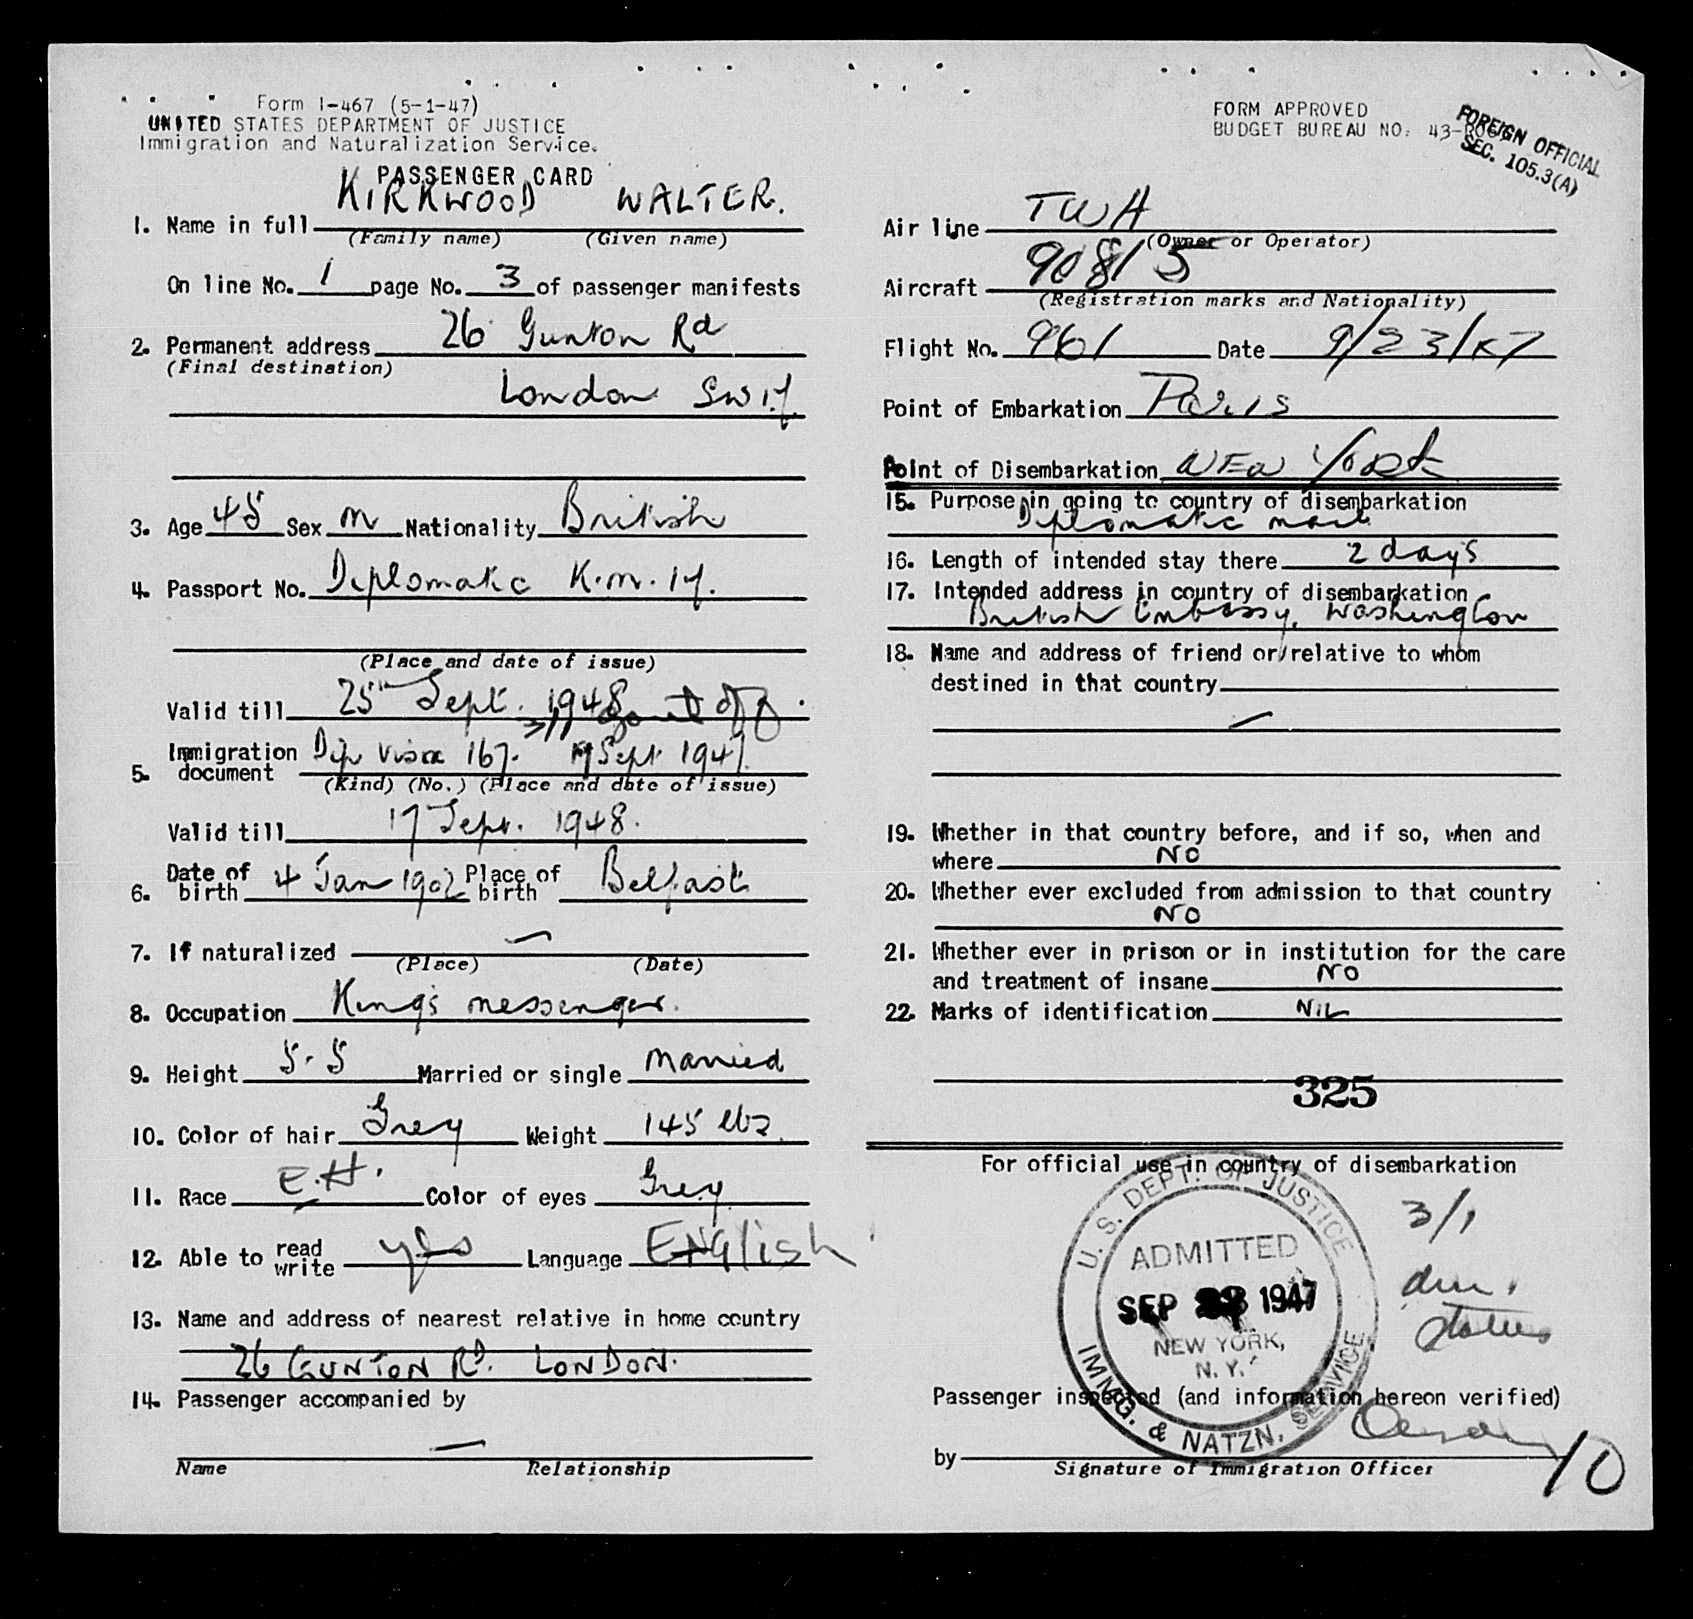 Form I-467 (5-1-47)
UNITED STATES DEPARTMENT OF JUSTICE
Immigration and Naturalization Service.
PASSENGER CARD
1. Name in full KIRKWOOD WALTER.
(Family name) (Given name)
On line No. 1 page No. 3 of passenger manifests
2. Permanent address 26 Gunton Rd
(Final destination)
London SW17.
3. Age 45 Sex M Nationality British
4. Passport No. Diplomatic K.M. 17.
(Place and date of issue)
Valid till 25th Sept. 1948
3/1 Govt off
5. Immigration document Dip Visa 167. 17 Sept 1947.
(Kind) (No.) (Place and date of issue)
Valid till 17 Sept. 1948.
6. Date of birth 4 Jan 1902 Place of birth Belfast
7. If naturalized —
(Place) (Date)
8. Occupation King's messenger.
9. Height 5.5 Married or single Married
10. Color of hair Grey Weight 145 lbs
11. Race E.H. Color of eyes Grey
12. Able to read write yes Language ENglish
13. Name and address of nearest relative in home country
26 GUNTON RD. LONDON.
14. Passenger accompanied by
—
Name Relationship
FORM APPROVED
BUDGET BUREAU NO. 43-
FOREIGN OFFICIAL
SEC. 105.3(A)
Air line TWA
(Owner or Operator)
Aircraft 90815
(Registration marks and Nationality)
Flight No. 961 Date 9/23/47
Point of Embarkation Paris
Point of Disembarkation NEW York
15. Purpose in going to country of disembarkation
Diplomatic mail
16. Length of intended stay there 2 days
17. Intended address in country of disembarkation
British Embassy, Washington
18. Name and address of friend or relative to whom
destined in that country
—
19. Whether in that country before, and if so, when and
where NO
20. Whether ever excluded from admission to that country
NO
21. Whether ever in prison or in institution for the care
and treatment of insane NO
22. Marks of identification NIL
325
For official use in country of disembarkation
3/1
dur.
status
U. S. DEPT. OF JUSTICE
ADMITTED
SEP 1947
NEW YORK,
N. Y.
IMMG. & NATZN. SERVICE
Passenger inspected (and information hereon verified)
by
Signature of Immigration Officer
10